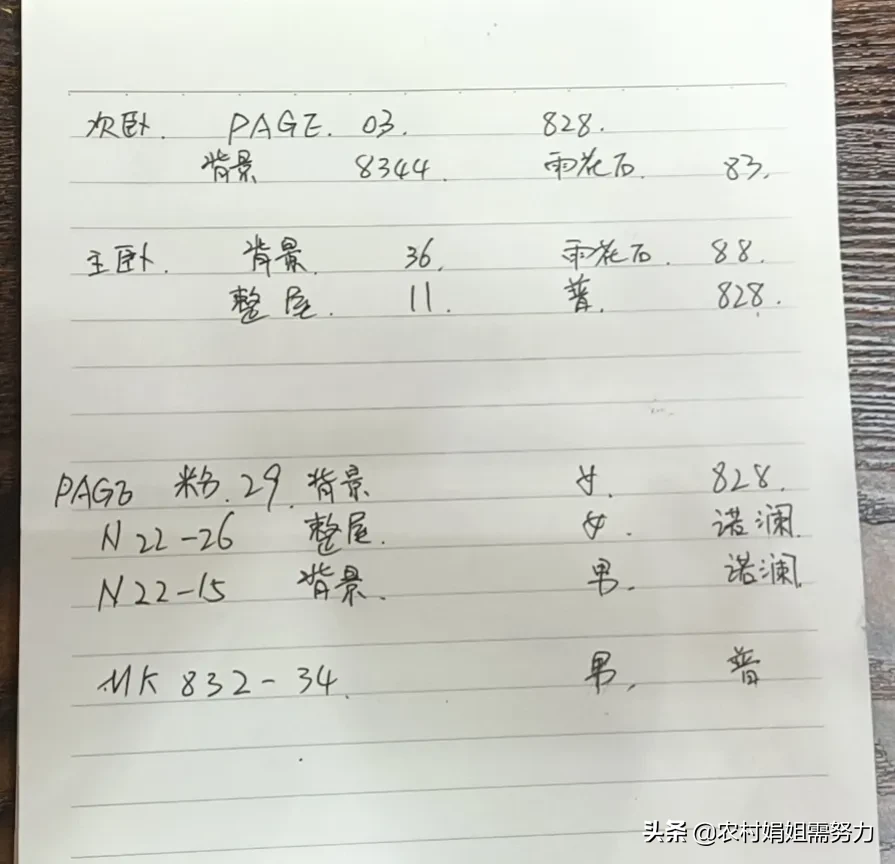 次卧. PAGE. 03. 828.
背景 8344. 雨花石. 83.
主卧. 背景. 36. 雨花石. 88.
整屋. 11. 普. 828.
PAGE 粉.29.背景 女. 828.
N 22-26 整屋. 女. 诺澜.
N 22-15 背景. 男. 诺澜.
MK 832-34. 男. 普
头条 @农村娟姐需努力